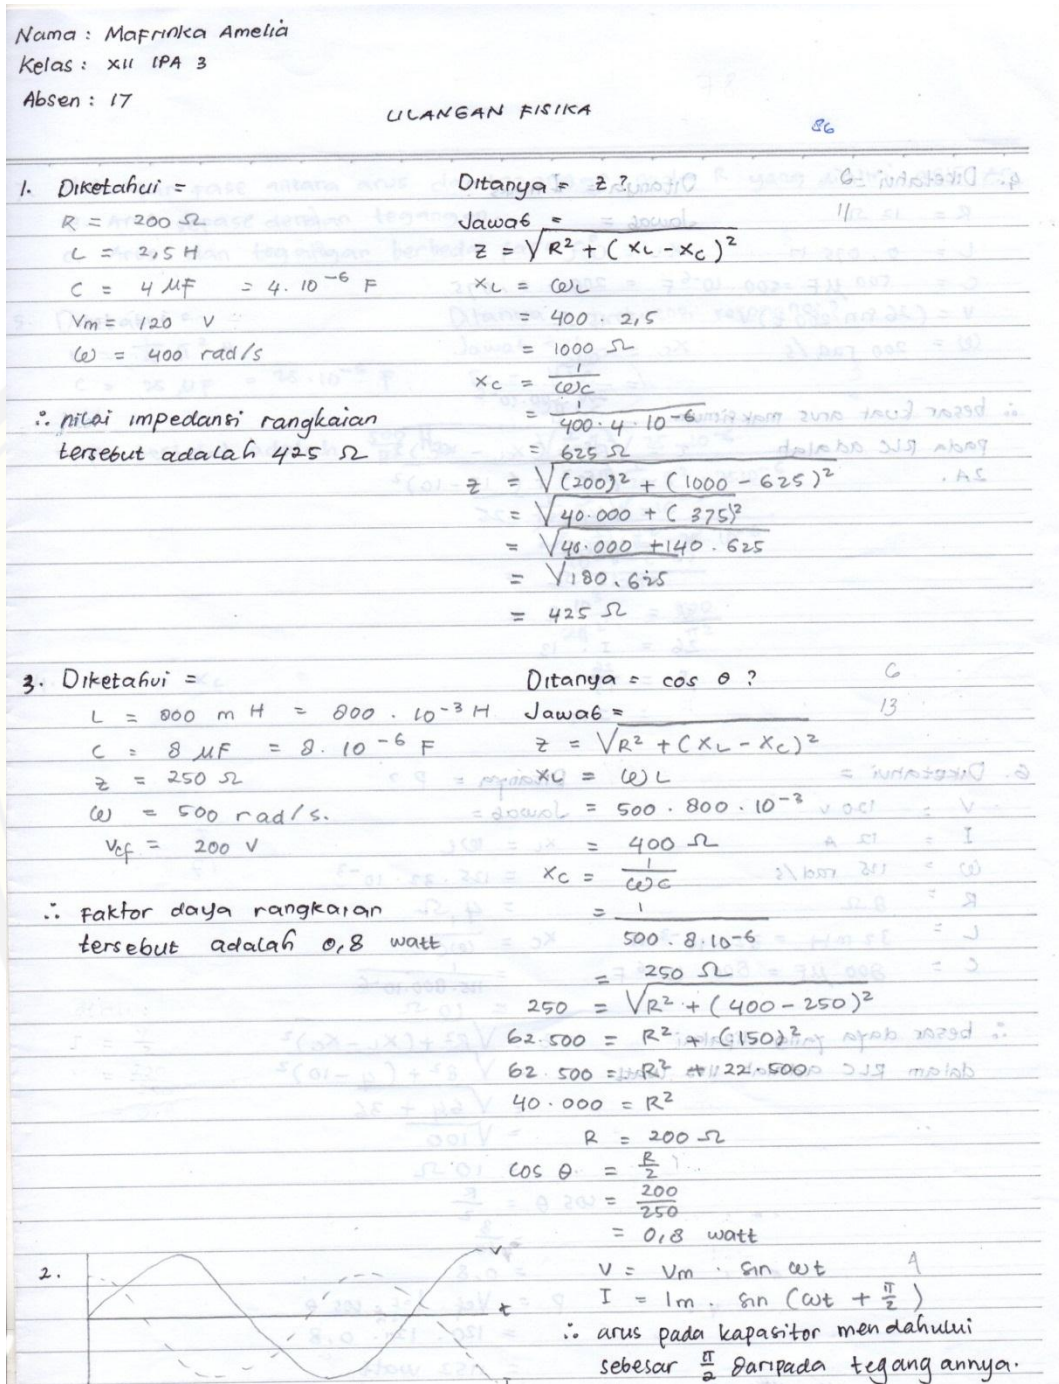 Nama : Mafrinka Amelia
Kelas : XII IPA 3
Absen : 17
ULANGAN FISIKA
86
1. Diketahui =
R = 200 Ω
L = 2,5 H
C = 4 μF = 4. 10⁻⁶ F
Vm = 120 V
ω = 400 rad/s
∴ nilai impedansi rangkaian
tersebut adalah 425 Ω
Ditanya = Z ?
Jawab =
Z = √R² + ( XL - XC )²
XL = ωL
= 400 . 2,5
= 1000 Ω
XC = 1/ωC
= 1/400 . 4 . 10⁻⁶
= 625 Ω
Z = √(200)² + (1000 - 625)²
= √40.000 + ( 375)²
= √40.000 + 140.625
= √180.625
= 425 Ω
6
11
3. Diketahui =
L = 800 m H = 800 . 10⁻³ H
C = 8 μF = 8. 10⁻⁶ F
Z = 250 Ω
ω = 500 rad/s.
Vef = 200 V
∴ Faktor daya rangkaian
tersebut adalah 0,8 watt
Ditanya = cos θ ?
Jawab =
Z = √R² + (XL - XC)²
XL = ωL
= 500 . 800 . 10⁻³
= 400 Ω
XC = 1/ωC
= 1/500 . 8.10⁻⁶
= 250 Ω
250 = √R² + ( 400 - 250)²
62.500 = R² + (150)²
62.500 = R² + 22.500
40.000 = R²
R = 200 Ω
cos θ = R/Z
= 200/250
= 0,8 watt
6
13
2.
V
t
I
V = Vm . sin ωt
I = Im . sin (ωt + π/2 )
∴ arus pada kapasitor mendahului
sebesar π/2 daripada tegangannya.